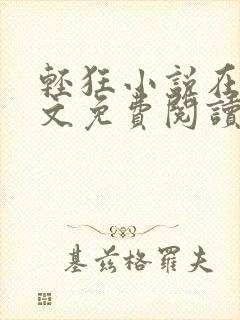 輕狂小說在
文免費閱讀
基茲格羅夫